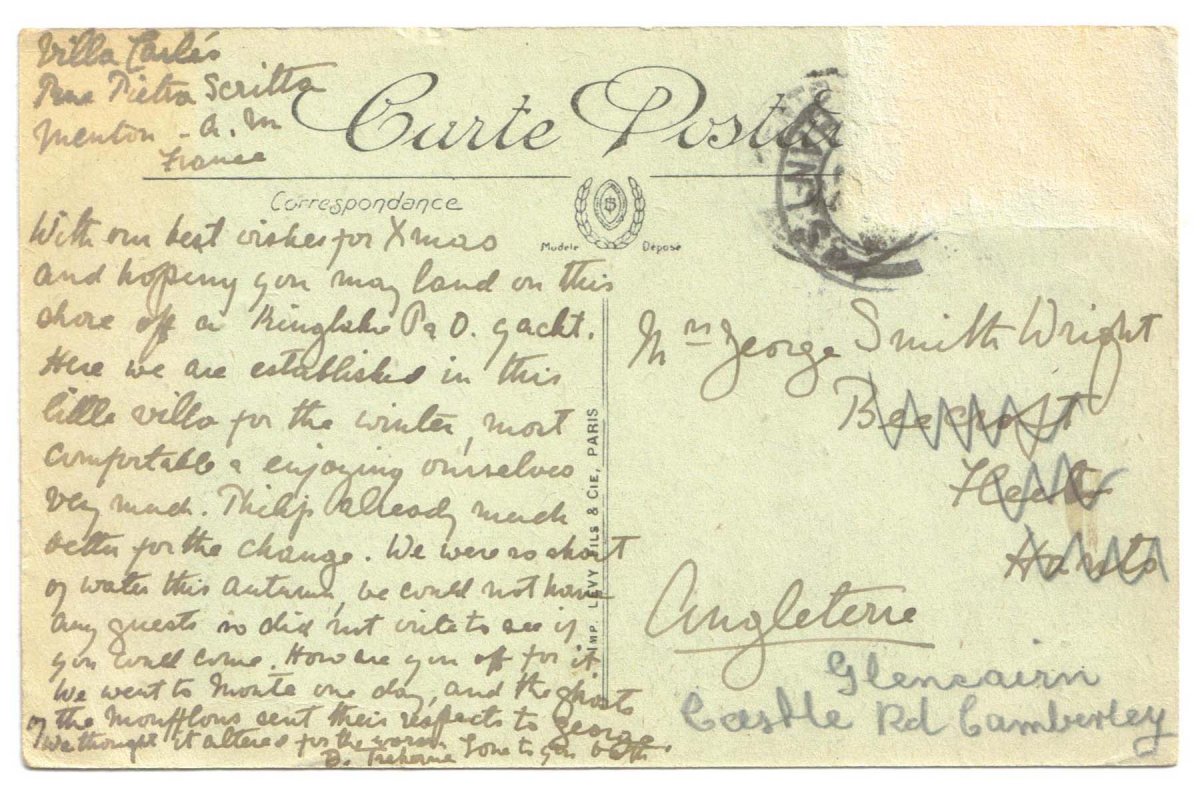 Villa Carlés
Pietra Scritta
Menton - A. M
France
Carte Postal
Correspondance
Modèle Déposé
S
With our best wishes for Xmas
and hoping you may land on this
shore off a P & O. yacht.
Here we are established in this
little villa for the winter, most
comfortable & enjoying ourselves
very much. Philip already much
better for the change. We were so short
of water this autumn, we could not have
any guests so did not write to see if
you could come. How are you off for it
We went to Monte one day, and the ghosts
of the Moufflons sent their respects to George.
We thought it altered for the worse. Love to you both
D. Treherne
IMP. LEVY FILS & CIE, PARIS
Mrs George Smith Wright
Beecroft
Fleet
Hants
Angleterre
Glencairn
Castle Rd Camberley